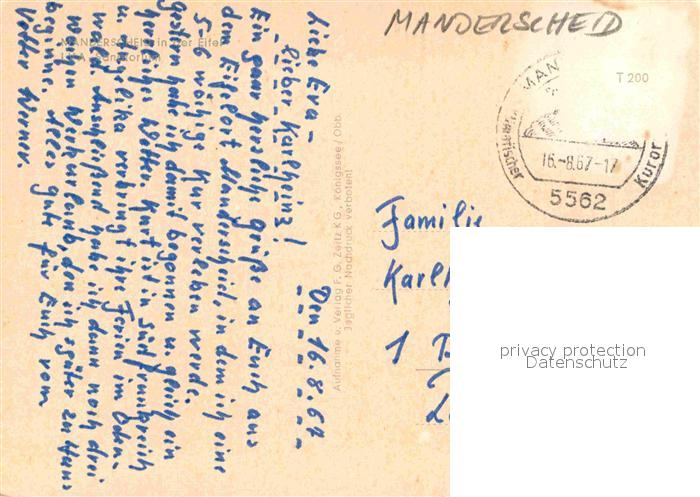 MANDERSCHEID
MANDERSCHEID in der Eifel
LVA-Sanatorium
T 200
MAN
Kuror
16.-8.67-17
5562
Aufnahme u. Verlag F. G. Zeitz KG., Königssee/Obb.
Jeglicher Nachdruck verboten!
Den 16.8.67
Liebe Eva -
lieber Karlheinz!
Ein ganz herzlich Grüße an Euch aus
dem Eifelort Manderscheid, in dem ich eine
5-6 wöchige Kur verleben werde.
Gestern habe ich damit begonnen u. gleich ein
herrliches Wetter. Kurt ist in Südfrankreich
u. verbringt ihre Ferien im Oden-
wald. Anschließend habe ich dann noch drei
Wochen Urlaub, den ich später zu Haus
beginne. Alles Gute für Euch vom
Vetter Werner.
Familie
Karlh
1 B
privacy protection
Datenschutz